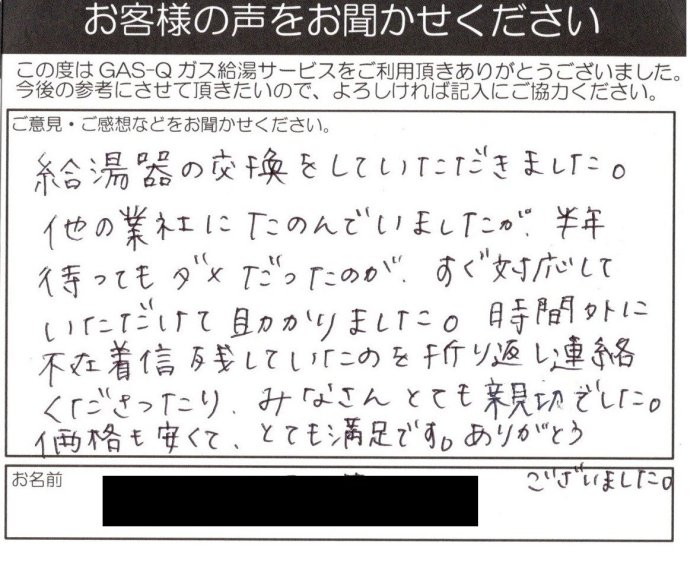 お客様の声をお聞かせください
この度は GAS-Q ガス給湯サービスをご利用頂きありがとうございました。
今後の参考にさせて頂きたいので、よろしければ記入にご協力ください。
ご意見・ご感想などをお聞かせください。
給湯器の交換をしていただきました。
他の業社にたのんでいましたが、半年
待ってもダメだったのが、すぐ対応して
いただけて助かりました。時間外に
不在着信残していたのを折り返し連絡
くださったり、みなさんとても親切でした。
価格も安くて、とても満足です。ありがとう
ございました。
お名前